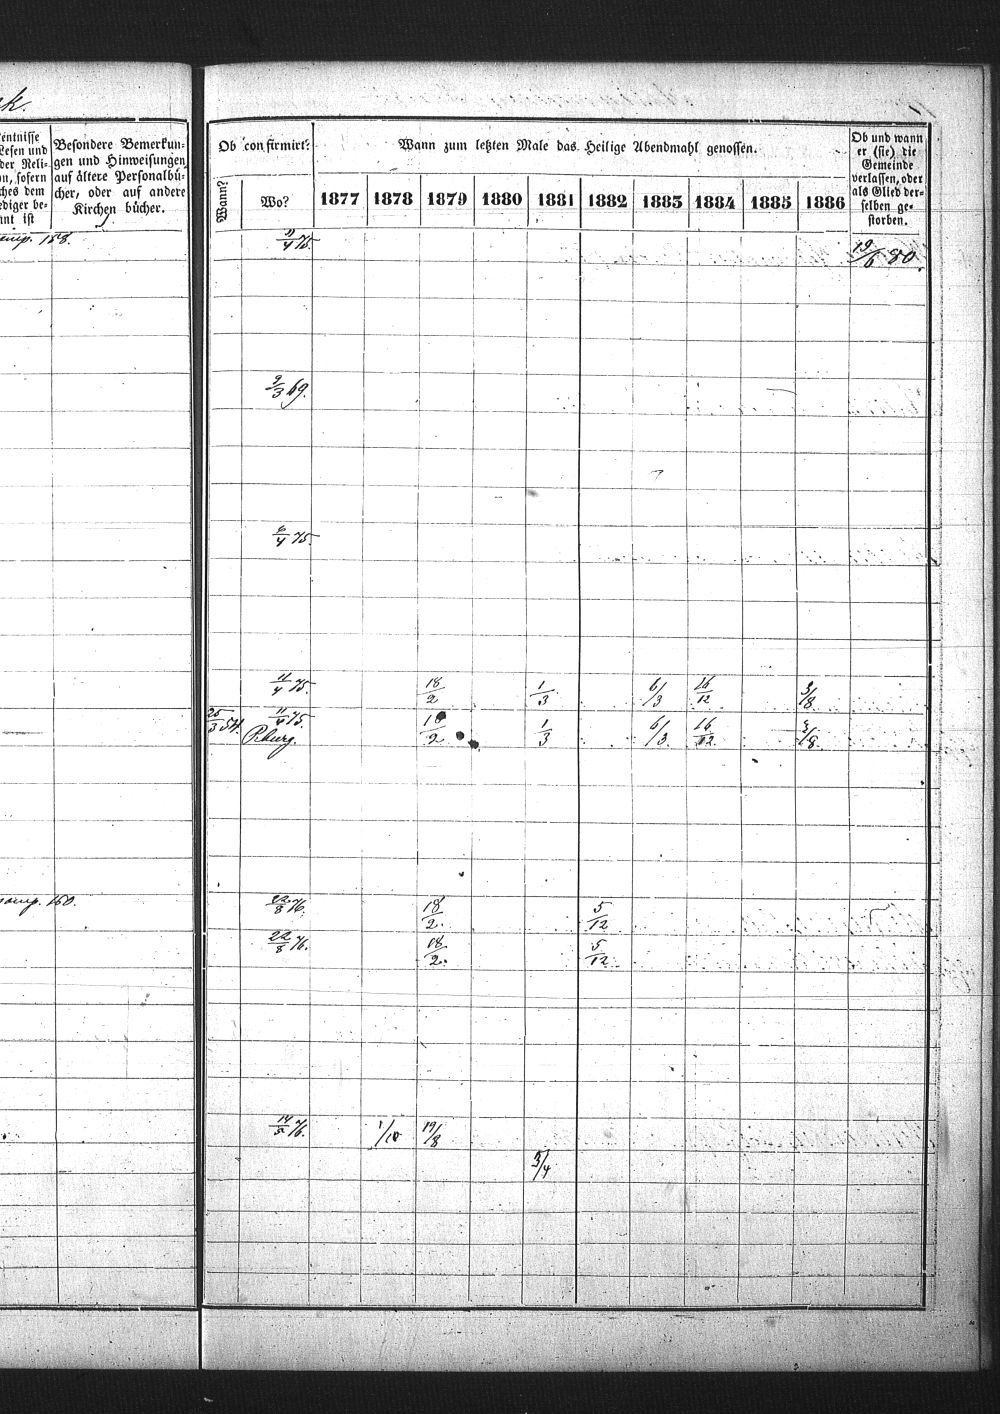 entnisse
Lesen und
der Reli-
n, sofern
ches dem
ediger be-
nnt ist
Besondere Bemerkun-
gen und Hinweisungen
auf ältere Personalbü-
cher, oder auf andere
Kirchen bücher.
Ob confirmirt?
Wann?
Wo?
Wann zum letzten Male das Heilige Abendmahl genossen.
1877 1878 1879 1880 1881 1882 1883 1884 1885 1886
Ob und wann
er (sie) die
Gemeinde
verlassen, oder
als Glied der-
selben ge-
storben.
158.
11/4 76. 19/6 80.
9/3 69.
6/4 75.
11/4 75. 18/2 1/3 6/3 16/12 3/8.
25/3 54. 11/4 75. 18/2 1/3 6/3. 16/12. 3/8.
Pburg.
160. 22/8 76. 18/2. 5/12
22/8 76. 18/2. 5/12
14/5 76. 1/10 19/8
3/4